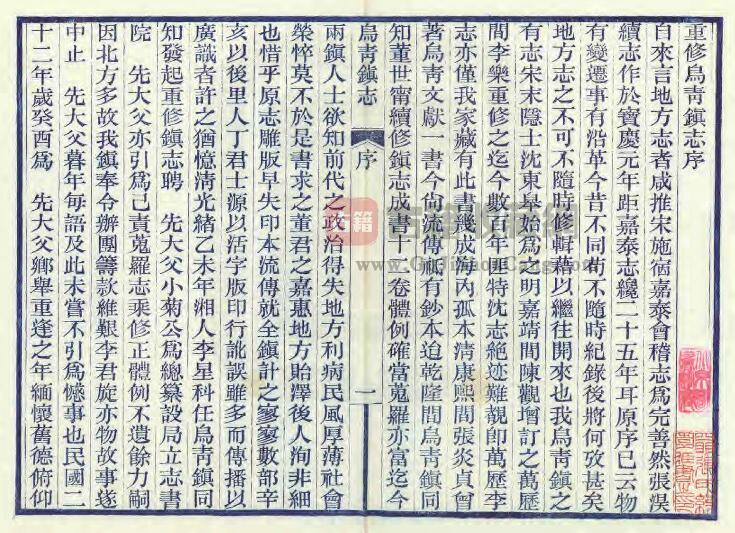 重修烏青鎮志序
自來言地方志者咸推宋施宿嘉泰會稽志爲完善然張淏
續志作於寶慶元年距嘉泰志纔二十五年耳原序已云物
有變遷事有沿革今昔不同苟不隨時紀錄後將何攷甚矣
地方志之不可不隨時修輯藉以繼往開來也我烏青鎮之
有志宋末隱士沈東皋始爲之明嘉靖間陳觀增訂之萬歷
間李樂重修之迄今數百年匪特沈志絕迹難覩即萬歷李
志亦僅我家藏有此書幾成海內孤本清康熙間張炎貞曾
著烏青文獻一書今尙流傳祇有鈔本迨乾隆間烏青鎮同
知董世甯續修鎮志成書十二卷體例確當蒐羅亦富迄今
烏青鎮志
序
一
兩鎮人士欲知前代之政治得失地方利病民風厚薄社會
榮悴莫不於是書求之董君之嘉惠地方貽澤後人洵非細
也惜乎原志雕版早失印本流傳就全鎮計之寥寥數部辛
亥以後里人丁君士源以活字版印行訛誤雖多而傳播以
廣識者許之猶憶淸光緒乙未年湘人李星科任烏青鎮同
知發起重修鎮志聘　先大父小菊公爲總纂設局立志書
院　先大父亦引爲己責蒐羅志乘修正體例不遺餘力嗣
因北方多故我鎮奉令辦團籌款維艱李君旋亦物故事遂
中止　先大父暮年每語及此未嘗不引爲憾事也民國二
十二年歲癸酉爲　先大父鄉舉重逢之年緬懷舊德俯仰
古籍收藏網
www.GuJiShouCang.com